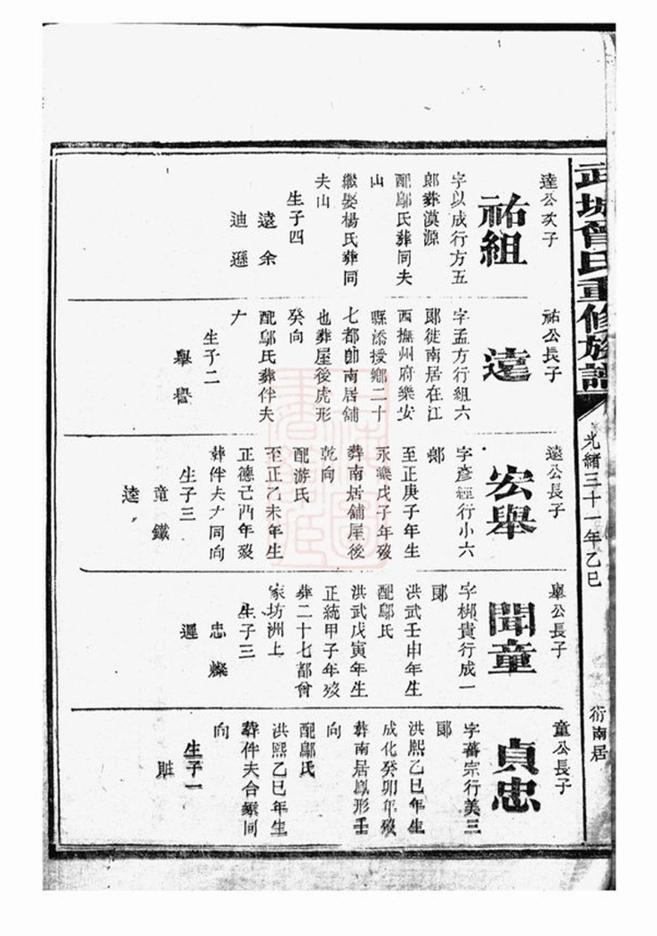 武城曾氏重修族譜
光緒三十一年乙巳
衍南居
達公次子
祐組
字以成行方五
郎葬漠源
配鄔氏葬同夫
山
繼娶楊氏葬同
夫山
生子四
遠 余
迪 遜
祐公長子
遠
字孟方行組六
郎徒南居在江
西撫州府樂安
縣添授鄉二十
七都帥南居舖
也葬屋後虎形
癸向
配鄔氏葬伴夫
生子二
舉 譽
遠公長子
宏舉
字彥經行小六
郎
至正庚子年生
永樂戊子年歿
葬南居舖屋後
乾向
配游氏
至正乙未年生
正德己酉年歿
葬伴夫左同向
生子三
童 鐵
達
舉公長子
聞童
字梆貴行成一
郎
洪武壬申年生
配鄔氏
洪武戊寅年生
正統甲子年歿
葬二十七都曾
家坊洲上
生子三
忠 燦
暹
童公長子
貞忠
字蕃宗行美三
郎
洪熙乙巳年生
成化癸卯年歿
葬南居鳳形壬
向
配鄔氏
洪熙乙巳年生
葬伴夫合塚同
向
生子一